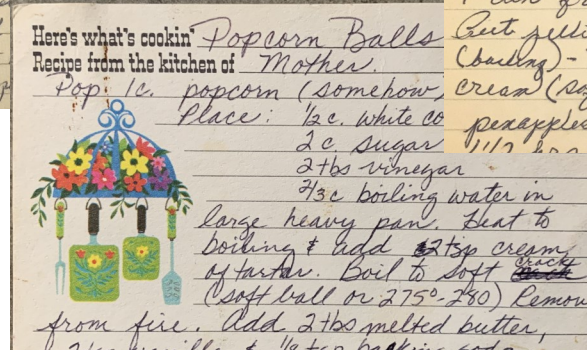 Here's what's cookin' Popcorn Balls
Recipe from the kitchen of Mother.
Pop 1c. popcorn (somehow,
Place: ½ c. white co
2 c. sugar
2 tbs vinegar
2/3 c boiling water in
large heavy pan. Heat to
boiling & add 2 tsp cream
of tartar. Boil to soft crack
(soft ball or 275°-280) Remov
from fire. Add 2 tbs melted butter,
(boiling) -
cream (so